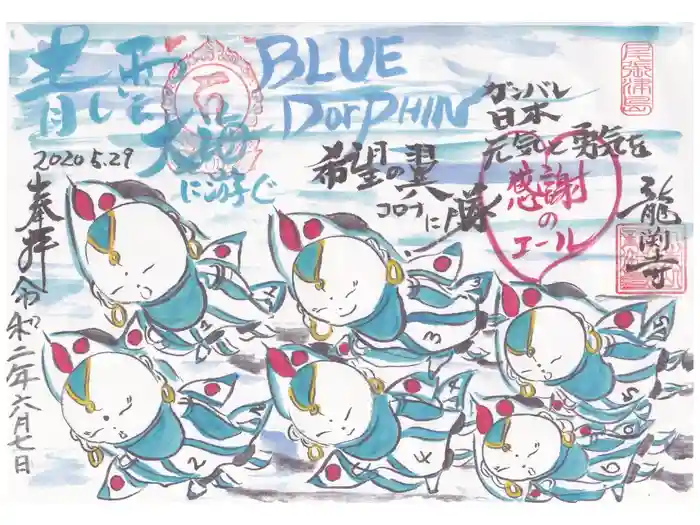 BLUE
DorPHIN
青い雲
大海
に游ぐ
2020 5.29
希望の翼
コロナに勝
ガンバレ
日本
元気と勇気を
感謝
の
エール
龍洲寺
奉拝
令和二年六月七日
1
3
5
2
4
6